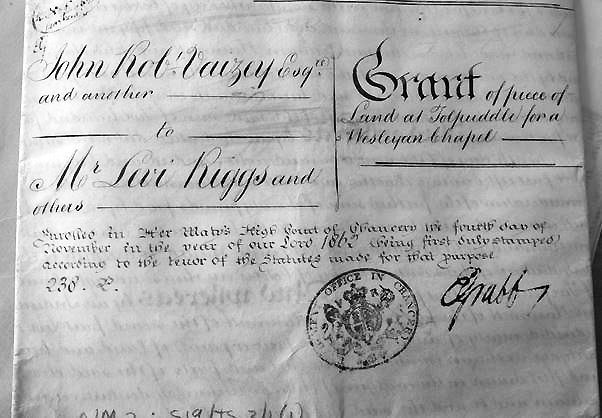 John Robt. Vaizey Esqre
and another
to
Mr Levi Riggs and
others
Grant of piece of
Land at Tolpuddle for a
Wesleyan Chapel
Enrolled in Her Maty's High Court of Chancery the fourth day of
November in the year of our Lord 1862 (being first duly stamped)
according to the tenor of the Statutes made for that purpose
OFFICE IN CHANCERY